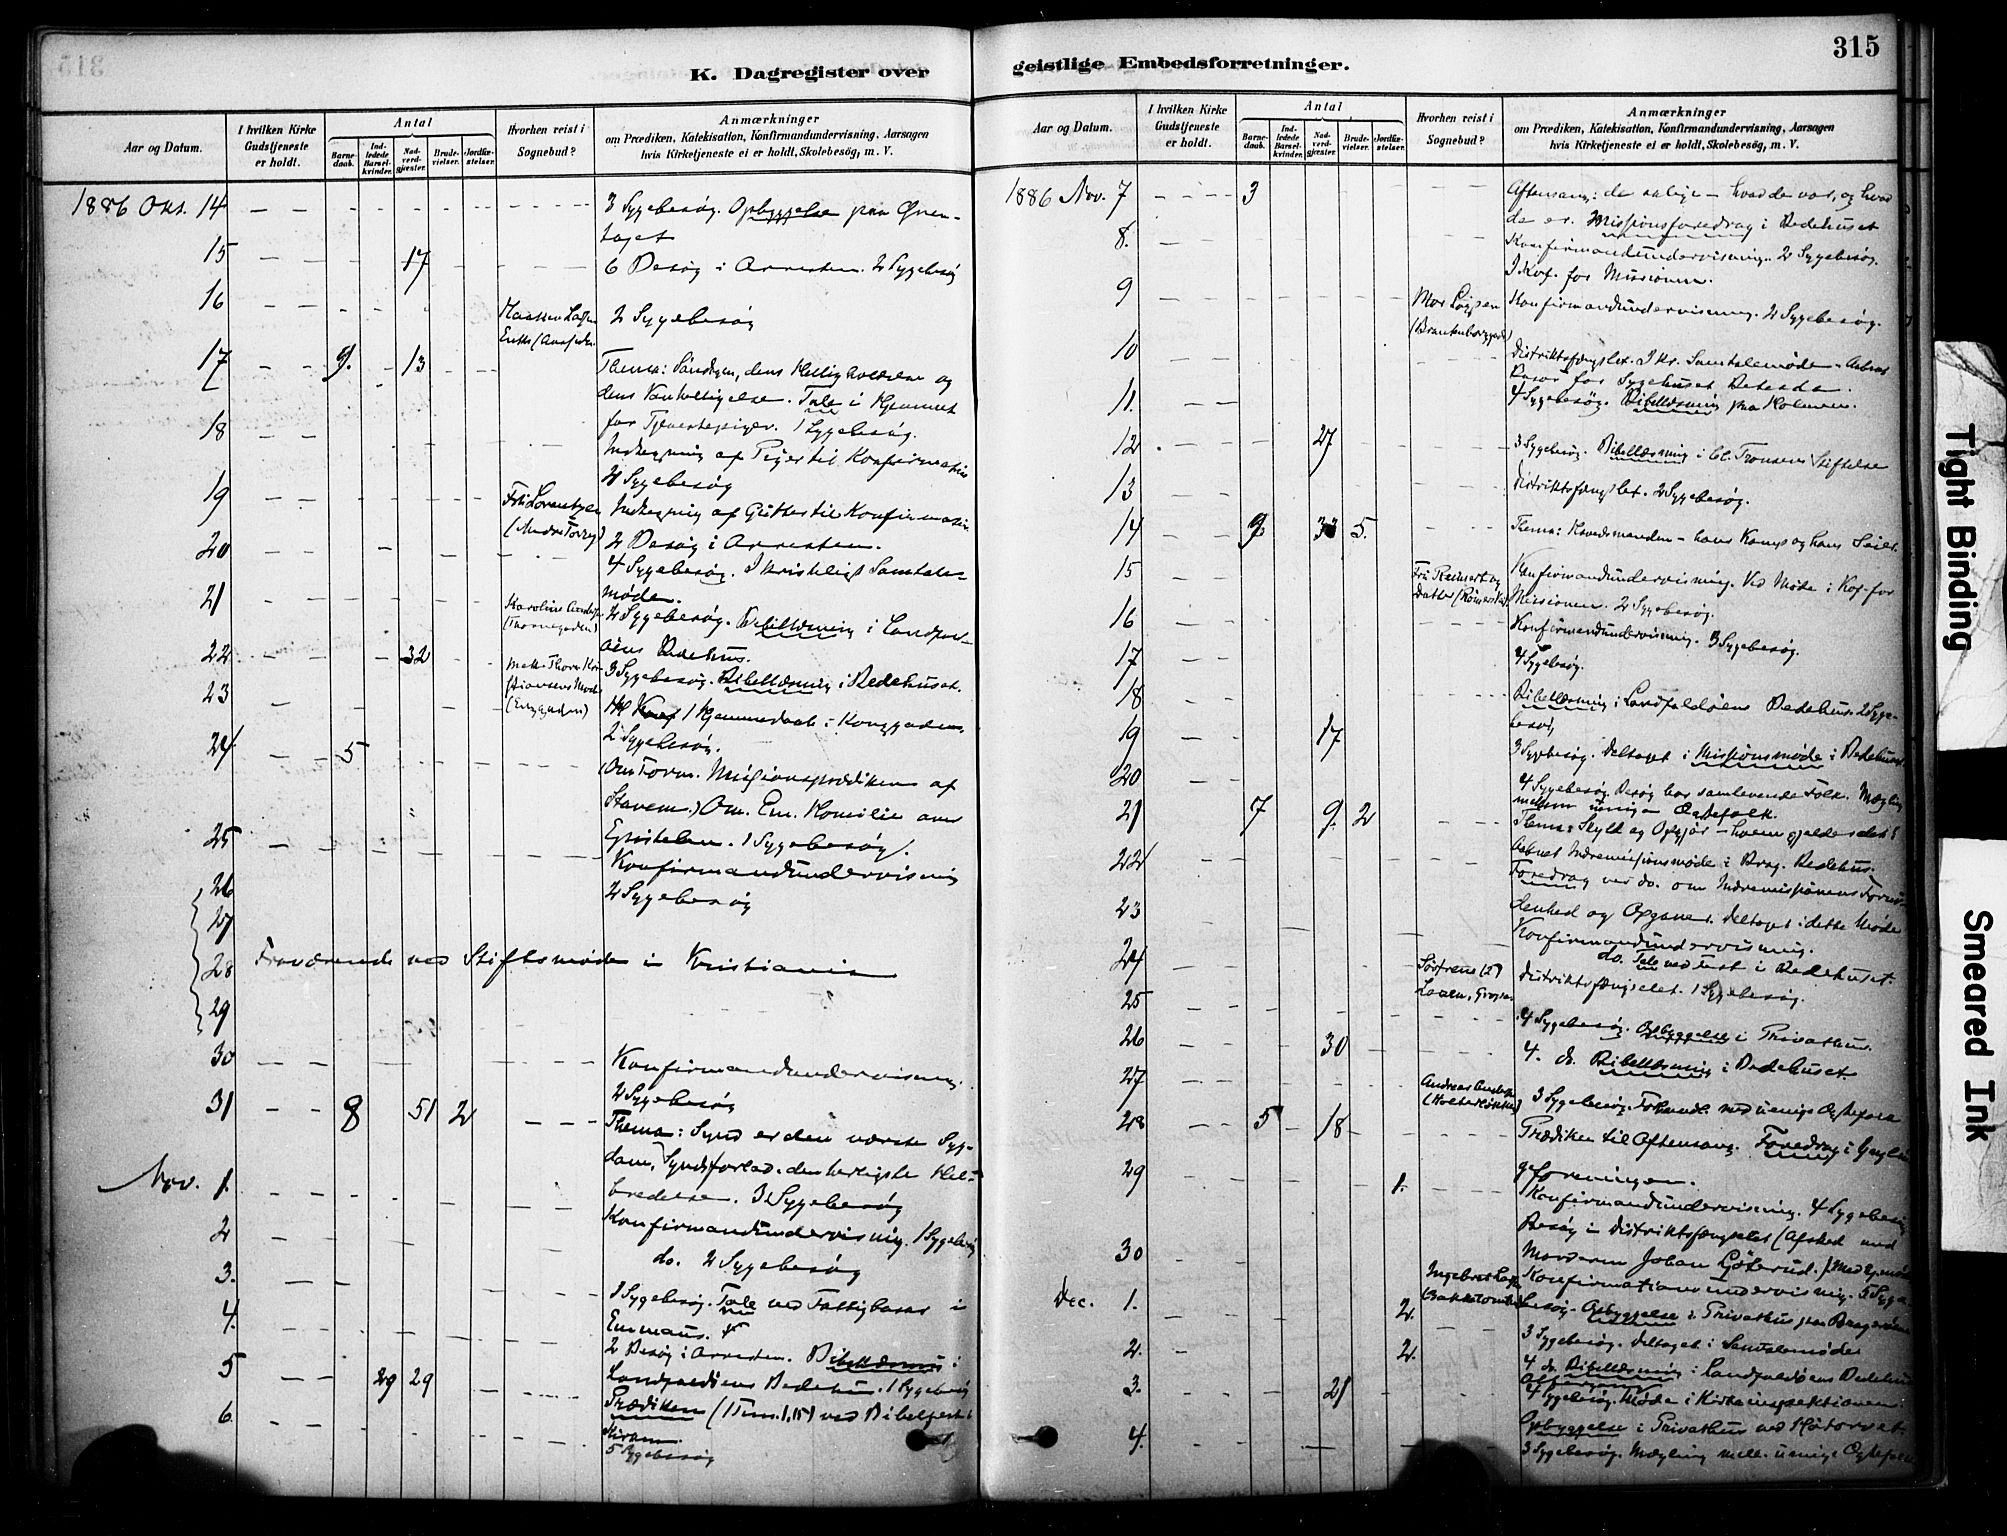 315
K. Dagregister over
geistlige Embedsforretninger.
Aar og Datum.
I hvilken Kirke Gudstjeneste er holdt.
Antal
Barne-daab.
Ind-ledede Barsel-kvinder.
Nad-verd-gjæster.
Brude-vielser.
Jordfæ-stelser.
Hvorhen reist i Sognebud?
Anmærkninger
om Prædiken, Katekisation, Konfirmandundervisning, Aarsagen
hvis Kirketjeneste ei er holdt, Skolebesög, m. V.
1886 Okt. 14
3 Sygebesøg. Opbyggelse paa Øren-
taget
15 17 6 Besøg i Arresten. 2 Sygebesøg
16 2 Sygebesøg
17 9. 13 Thema: Søndagen, dens Hellighed og
dens Vanhelligelse. Tale i Hjemmet
for Tjenestepiger. 1 Sygebesøg.
18 Indtegning af Piger til Konfirmation
2 Sygebesøg
19 Fru Lorentzen Indtegning af Gutter til Konfirmation
2 Besøg i Arresten.
20 4 Sygebesøg. I kristeligt Samtale-
møde.
21 2 Sygebesøg. Bibellæsning i Landfald-
øens Bedehus.
22 32 3 Sygebesøg. Bibellæsning i Bedehuset.
23 1 Hjemmedaab i Konggaden.
2 Sygebesøg.
24 5 Missionsprædiken af
Stavem.) Om. Em. Homilie over
Epistelen. 1 Sygebesøg.
25 Konfirmandundervisning
2 Sygebesøg
26
27
28 Fraværende ved Stiftsmøde i Kristiania
29
30 Konfirmandundervisning.
2 Sygebesøg
31 8 51 2 Thema: Synd er den værste Syg-
dom, Syndsforlad. den herligste Hel-
bredelse. 3 Sygebesøg
Nov. 1. Konfirmandundervisning. 1 Sygebesøg
2 do. 2 Sygebesøg
3. 3 Sygebesøg. Tale ved Fattigbasar i
Emmaus.
4. 2 Besøg i Arresten. Bibellæsning i
Landfaldøens Bedehus. 1 Sygebesøg
5 29 29 Prædiken (1 Tim. 1,15) ved Bibelfest i
Kirken.
6. 5 Sygebesøg
Aar og Datum.
I hvilken Kirke Gudstjeneste er holdt.
Antal
Barne-daab.
Ind-ledede Barsel-kvinder.
Nad-verd-gjæster.
Brude-vielser.
Jordfæ-stelser.
Hvorhen reist i Sognebud?
Anmærkninger
om Prædiken, Katekisation, Konfirmandundervisning, Aarsagen
hvis Kirketjeneste ei er holdt, Skolebesög, m. V.
1886 Nov. 7 3 Aftensang: de salige – hvad de var, og hvad
de er. Missionsforedrag i Bedehuset
8. Konfirmandundervisning. 2 Sygebesøg.
for Missionen.
9 Konfirmandundervisning. 2 Sygebesøg.
10 Distriktsfængslet. I kr. Samtalemøde.
Basar for Sygehuset
11. 4 Sygebesøg. Bibellæsning paa Holmen.
12 27 3 Sygebesøg. Bibellæsning i Cl. Tronsens Stiftelse
13 Distriktsfængslet. 2 Sygebesøg.
14 9 5. Thema: Høvedsmanden – hans Kamp og hans Seier.
15 Konfirmandundervisning. Ved Møde i for
Missionen. 2 Sygebesøg.
16 Konfirmandundervisning. 3 Sygebesøg.
17 4 Sygebesøg.
18 Bibellæsning i Landfaldøens Bedehus. 2 Syge-
besøg
19 17 3 Sygebesøg. Deltaget i Missionsmøde i Bedehuset.
20 4 Sygebesøg. Besøg hos samlevende Folk. Mægling
mellem uenig Ægtefolk.
21 7 9. 2 Thema: Skyld og Opgjør – hvem gjælder det?
22 Aabnet Indremissionsmøde i Brag. Bedehus.
Foredrag ved do. om Indremissionens
23 og Opgaver. Deltaget i dette Møde
Konfirmandundervisning.
24 do. Tale ved Fest i Bedehuset.
Distriktsfængselet. 1 Sygebesøg.
25 4 Sygebesøg. Opbyggelse i Privathus.
26 30 4. do. Bibellæsning i Bedehuset.
27 3 Sygebesøg. Forhandl. med uenige Ægtefolk
28 5 18 Prædiken til Aftensang. Foredrag i
foreningen.
29 1. Konfirmandundervisning. 4 Sygebesøg
Besøg i Distriktsfængslet (Afsked med
30 Morderen Johan
Konfirmationsundervisning. 3 Syge-
Dec. 1. 2. besøg. Opbyggelse i Privathus paa Bragernes
2. 2. 3 Sygebesøg. Deltaget i Samtalemøde
4 do. Bibellæsning i Landfaldøens Bedehus
3. 21 4 Sygebesøg. Møde i Kirkeinspektionen.
Opbyggelse i Privathus ved Høtorvet.
4. 3 Sygebesøg. Mægling mell. uenige Ægtefolk
Tight Binding
Smeared Ink